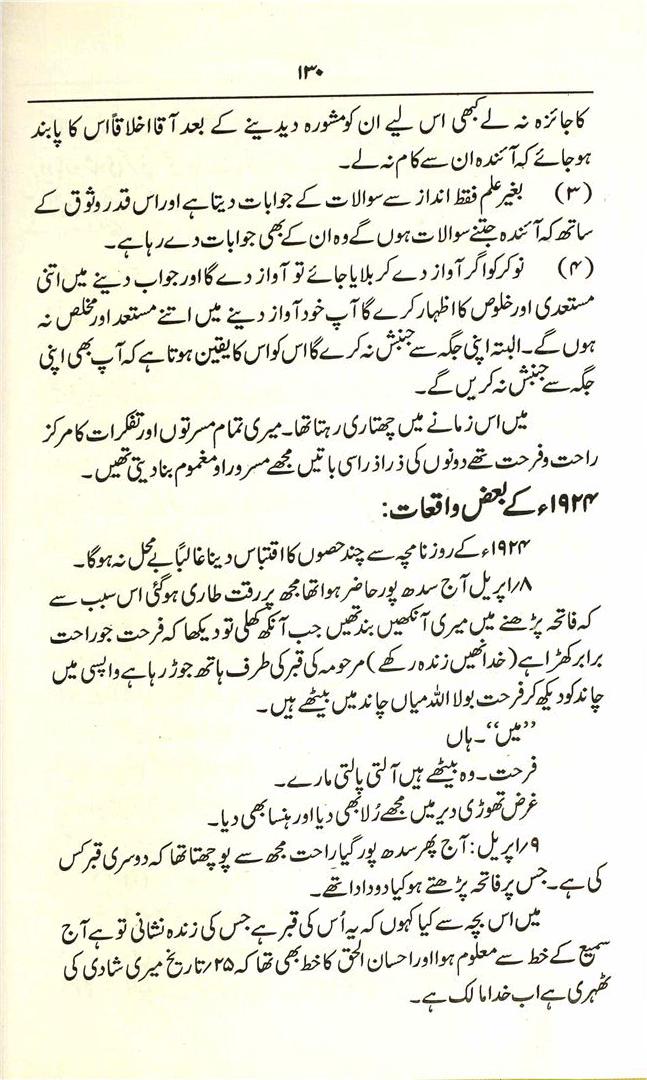 ۱۳۰
کا جائزہ نہ لے کبھی اس لیے ان کو مشورہ دیدینے کے بعد آقا اخلاقاً اس کا پابند
ہو جائے کہ آئندہ ان سے کام نہ لے۔
(۳) بغیر علم فقط انداز سے سوالات کے جوابات دیتا ہے اور اس قدر وثوق کے
ساتھ کہ آئندہ جتنے سوالات ہوں گے وہ ان کے بھی جوابات دے رہا ہے۔
(۴) نوکر کو اگر آواز دے کر بلایا جائے تو آواز دے گا اور جواب دینے میں اتنی
مستعدی اور خلوص کا اظہار کرے گا آپ خود آواز دینے میں اتنے مستعد اور مخلص نہ
ہوں گے۔ البتہ اپنی جگہ سے جنبش نہ کرے گا اس کو اس کا یقین ہوتا ہے کہ آپ بھی اپنی
جگہ سے جنبش نہ کریں گے۔
میں اس زمانے میں چھتاری رہتا تھا۔ میری تمام مسرتوں اور تفکرات کا مرکز
راحت و فرحت تھے دونوں کی ذرا ذرا سی باتیں مجھے مسرور او مغموم بنا دیتی تھیں۔
۱۹۲۴ء کے بعض واقعات:
۱۹۲۴ء کے روزنامچہ سے چند حصوں کا اقتباس دینا غالباً بے محل نہ ہوگا۔
۸/اپریل آج سدھ پور حاضر ہوا تھا مجھ پر رقت طاری ہوگئی اس سبب سے
کہ فاتحہ پڑھنے میں میری آنکھیں بند تھیں جب آنکھ کھلی تو دیکھا کہ فرحت جو راحت
برابر کھڑا ہے (خدا انھیں زندہ رکھے) مرحومہ کی قبر کی طرف ہاتھ جوڑ رہا ہے واپسی میں
چاند کو دیکھ کر فرحت بولا اللہ میاں چاند میں بیٹھے ہیں۔
’’میں‘‘۔ ہاں
فرحت۔ وہ بیٹھے ہیں آلتی پالتی مارے۔
غرض تھوڑی دیر میں مجھے رُلا بھی دیا اور ہنسا بھی دیا۔
۹/اپریل: آج پھر سدھ پور گیا راحت مجھ سے پوچھتا تھا کہ دوسری قبر کس
کی ہے۔ جس پر فاتحہ پڑھتے ہو کیا دودا دا تھے۔
میں اس بچہ سے کیا کہوں کہ یہ اُس کی قبر ہے جس کی زندہ نشانی تو ہے آج
سمیع کے خط سے معلوم ہوا اور احسان الحق کا خط بھی تھا کہ ۲۵/تاریخ میری شادی کی
ٹھہری ہے اب خدا مالک ہے۔